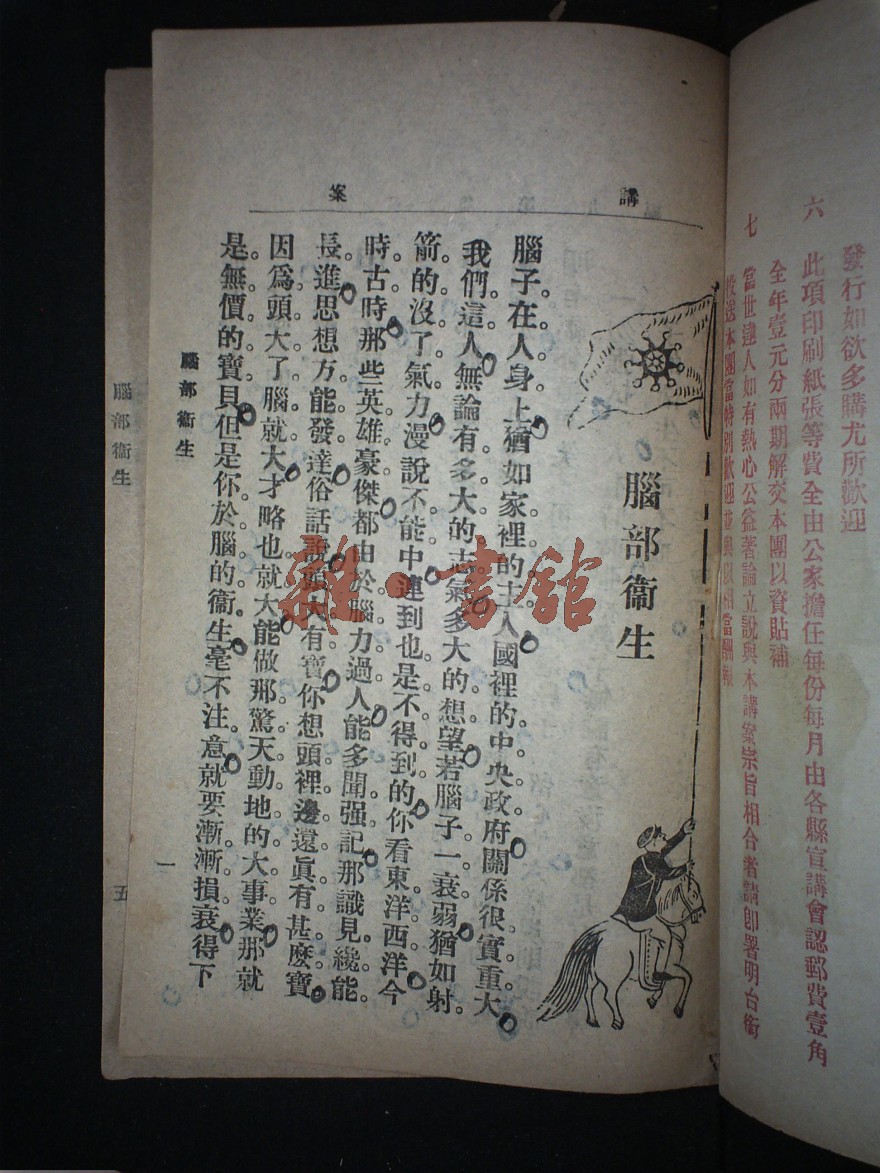 發行如欲多購尤所歡迎
六 此項印刷紙張等費全由公家擔任每份每月由各縣宣講會認郵費壹角
全年壹元分兩期解交本團以資貼補
七 當世達人如有熱心公益著論立說與本講案宗旨相合者請即署明台銜
投送本團當特別歡迎並與以相當酬報
講案
腦部衞生
腦子在人身上猶如家裡的主人國裡的中央政府關係很實重大
我們這人無論有多大的志氣多大的想望若腦子一衰弱猶如射
箭的沒了氣力漫說不能中連到也是不得到的你看東洋西洋今
時古時那些英雄豪傑都由於腦力過人能多聞强記那識見纔能
長進思想方能發達俗話說頭大有寶你想頭裡邊還眞有甚麼寶
因爲頭大了腦就大才略也就大能做那驚天動地的大事業那就
是無價的寶貝但是你於腦的衞生毫不注意就要漸漸損衰得下
腦部衞生
一
腦部衞生
五
雜·書館